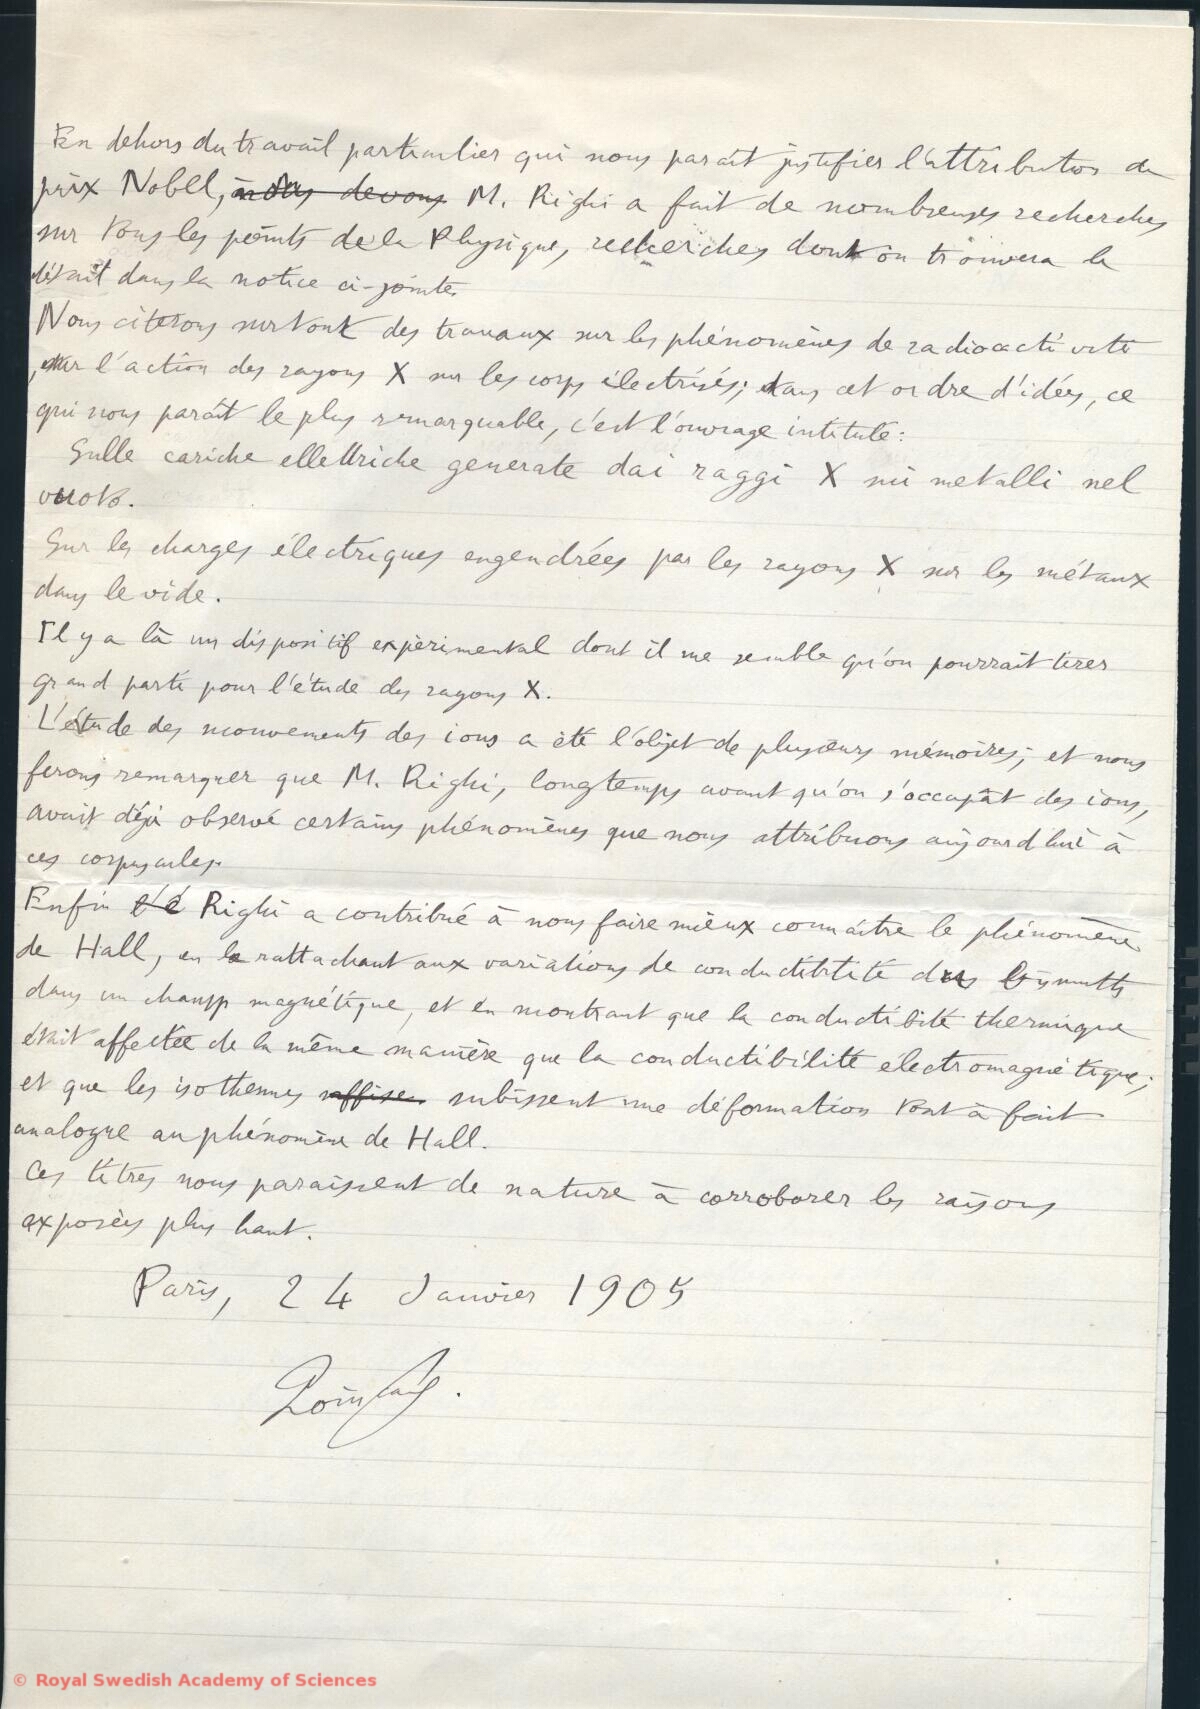 En dehors du travail particulier qui nous parait justifier l'attribution du
prix Nobel, nous devons M. Righi a fait de nombreuses recherches
sur tous les points de la Physique, recherches dont on trouvera le
détail dans la notice ci-jointe.
Nous citerons surtout des travaux sur les phénomènes de radioactivité
, sur l'action des rayons X sur les corps électrisés; dans cet ordre d'idées, ce
qui nous paraît le plus remarquable, c'est l'ouvrage intitulé:
Sulle cariche ellettriche generate dai raggi X sui metalli nel
vuoto.
Sur les charges électriques engendrées par les rayons X sur les métaux
dans le vide.
Il y a là un dispositif expèrimental dont il me semble qu'on pourrait tirer
grand parti pour l'étude des rayons X.
L'étude des mouvements des ions a été l'objet de plusieurs mémoires; et nous
ferons remarquer que M. Righi, longtemps avant qu'on s'occupât des ions,
avait déjà observé certains phénomènes que nous attribuons aujourd'hui à
ces corpuscules.
Enfin Righi a contribué à nous faire mieux connaître le phénomène
de Hall, en le rattachant aux variations de conductibilité du bismuth
dans un champ magnétique, et en montrant que la conductibilité thermique
était affectée de la même manière que la conductibilité electromagnétique;
et que les isothermes subissent une déformation tout à fait
analogue au phénomène de Hall.
Ces titres nous paraissent de nature à corroborer les raisons
exposées plus haut.
Paris, 24 Janvier 1905
Poincaré.
© Royal Swedish Academy of Sciences